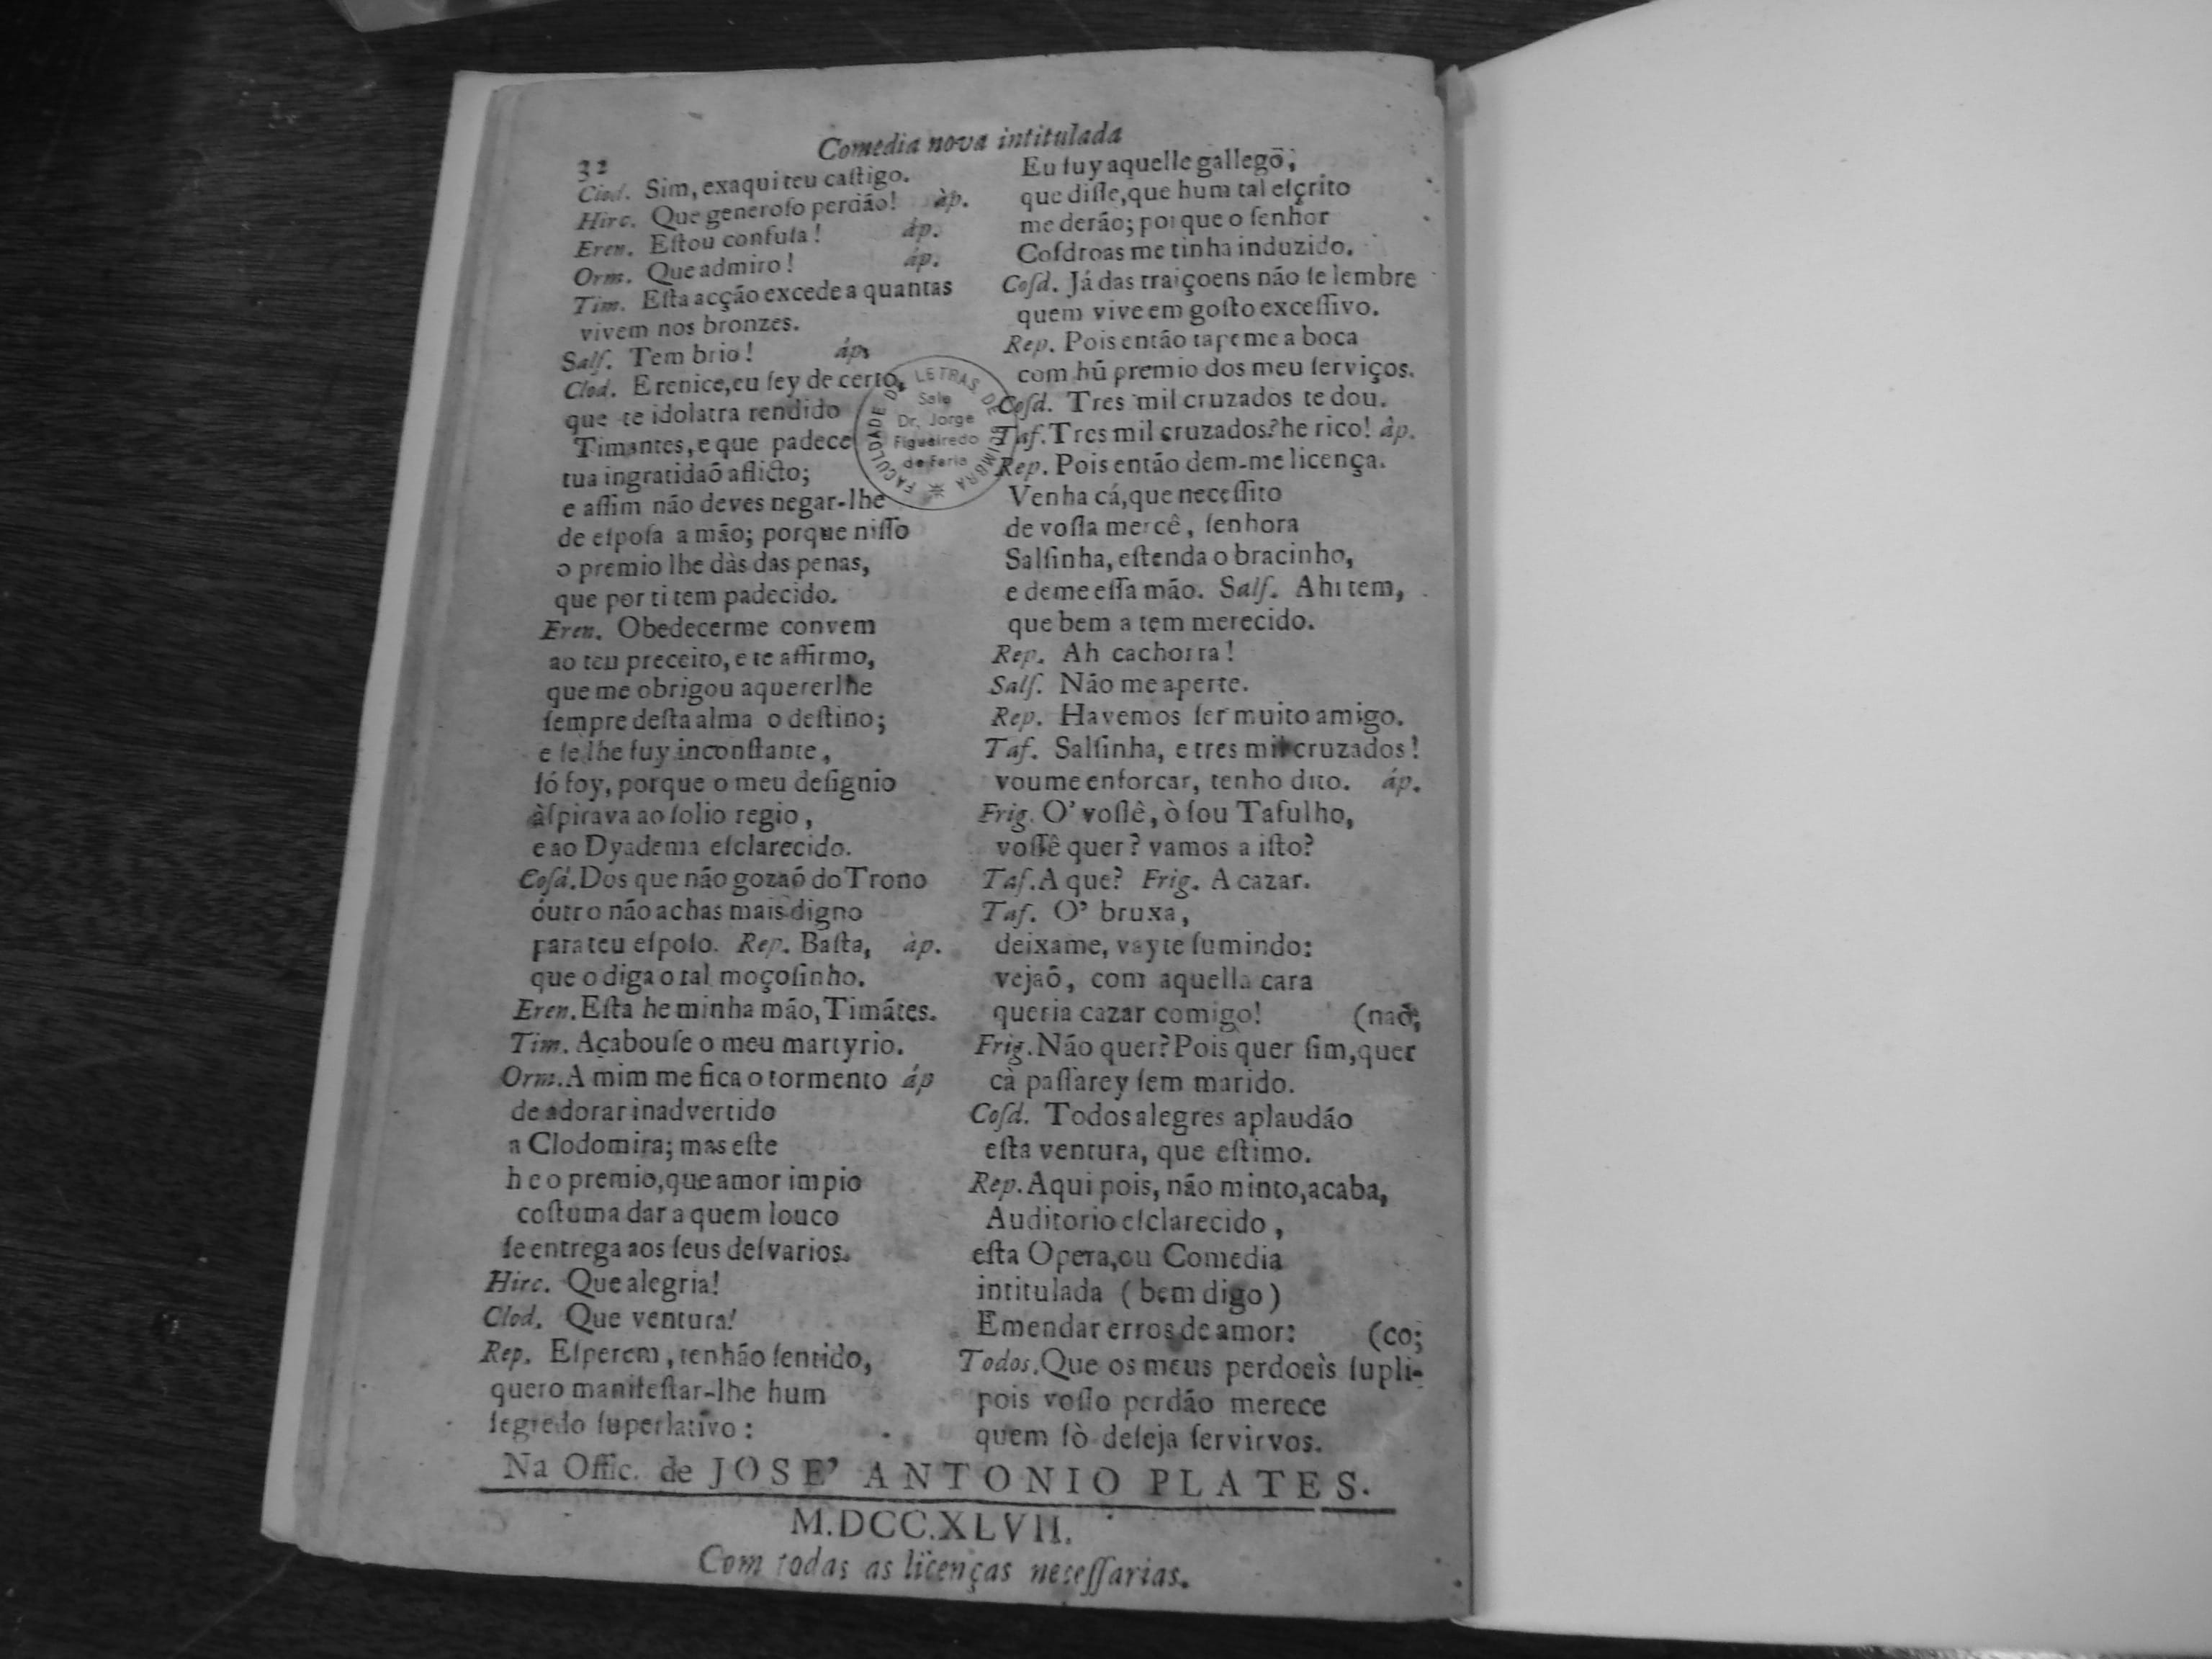 32
Comedia nova intitulada
Clod. Sim, exaqui teu caſtigo.
Hirc. Que generoſo perdão! àp.
Eren. Eſtou confuſa! áp.
Orm. Que admiro! áp.
Tim. Eſta acção excede a quantas
vivem nos bronzes.
Salſ. Tem brio! áp.
Clod. Erenice, eu ſey de certo,
que te idolatra rendido
Timantes, e que padece
tua ingratidaõ aflicto;
e aſſim não deves negar-lhe
de eſpoſa a mão; porque niſſo
o premio lhe dàs das penas,
que por ti tem padecido.
Eren. Obedecerme convem
ao teu preceito, e te affirmo,
que me obrigou aquererlhe
ſempre deſta alma o deſtino;
e ſe lhe fuy inconſtante,
ſó foy, porque o meu deſignio
àſpirava ao ſolio regio,
e ao Dyadema eſclarecido.
Coſd. Dos que não gozaõ do Trono
outro não achas mais digno
para teu eſpoſo. Rep. Baſta, àp.
que o diga o tal moçoſinho.
Eren. Eſta he minha mão, Timãtes.
Tim. Acabouſe o meu martyrio.
Orm. A mim me fica o tormento áp
de adorar inadvertido
a Clodomira; mas eſte
he o premio, que amor impio
coſtuma dar a quem louco
ſe entrega aos ſeus deſvarios.
Hirc. Que alegria!
Clod. Que ventura!
Rep. Eſperem, tenhão ſentido,
quero manifeſtar-lhe hum
ſegredo ſuperlativo:
Eu fuy aquelle gallego,
que diſſe, que hum tal eſcrito
me derão; porque o ſenhor
Coſdroas me tinha induzido.
Coſd. Já das traiçoens não ſe lembre
quem vive em goſto exceſſivo.
Rep. Pois então tapeme a boca
com hũ premio dos meu ſerviços.
Coſd. Tres mil cruzados te dou.
Taf. Tres mil cruzados? he rico! àp.
Rep. Pois então dem-me licença.
Venha cá, que neceſſito
de voſſa mercê, ſenhora
Salſinha, eſtenda o bracinho,
e deme eſſa mão. Salſ. Ahi tem,
que bem a tem merecido.
Rep. Ah cachorra!
Salſ. Não me aperte.
Rep. Havemos ſer muito amigo.
Taf. Salſinha, e tres mil cruzados!
voume enforcar, tenho dito. áp.
Frig. O' voſſê, ò ſou Tafulho,
voſſê quer? vamos a iſto?
Taf. A que? Frig. A cazar.
Taf. O' bruxa,
deixame, vayte ſumindo:
vejaõ, com aquella cara
queria cazar comigo! (naõ;
Frig. Não quer? Pois quer ſim, quer
cà paſſarey ſem marido.
Coſd. Todos alegres aplaudão
eſta ventura, que eſtimo.
Rep. Aqui pois, não minto, acaba,
Auditorio eſclarecido,
eſta Opera, ou Comedia
intitulada (bem digo)
Emendar erros de amor: (co;
Todos. Que os meus perdoeìs ſupli-
pois voſſo perdão merece
quem ſò deſeja ſervirvos.
FACULDADE DE LETRAS DE COIMBRA
Sala
Dr. Jorge
Figueiredo
de Faria
Na Offic. de JOSE' ANTONIO PLATES.
M.DCC.XLVII.
Com todas as licenças neceſſarias.